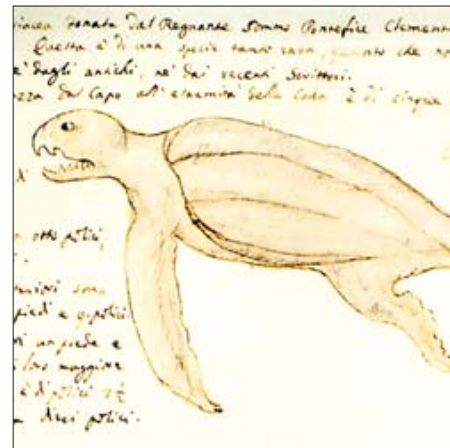 donata dal Regnante Sommo Pontefice Clemente
Questa è di una specie tanto rara, quanto che no
dagli antichi, nè dai recenti Scrittori.
dal Capo all' estremità della Coda è di cinque
di
otto pollici,
sono
piedi e 9. pollici.
un piede e
loro maggiore
è di pollici 7 ½
dieci pollici.